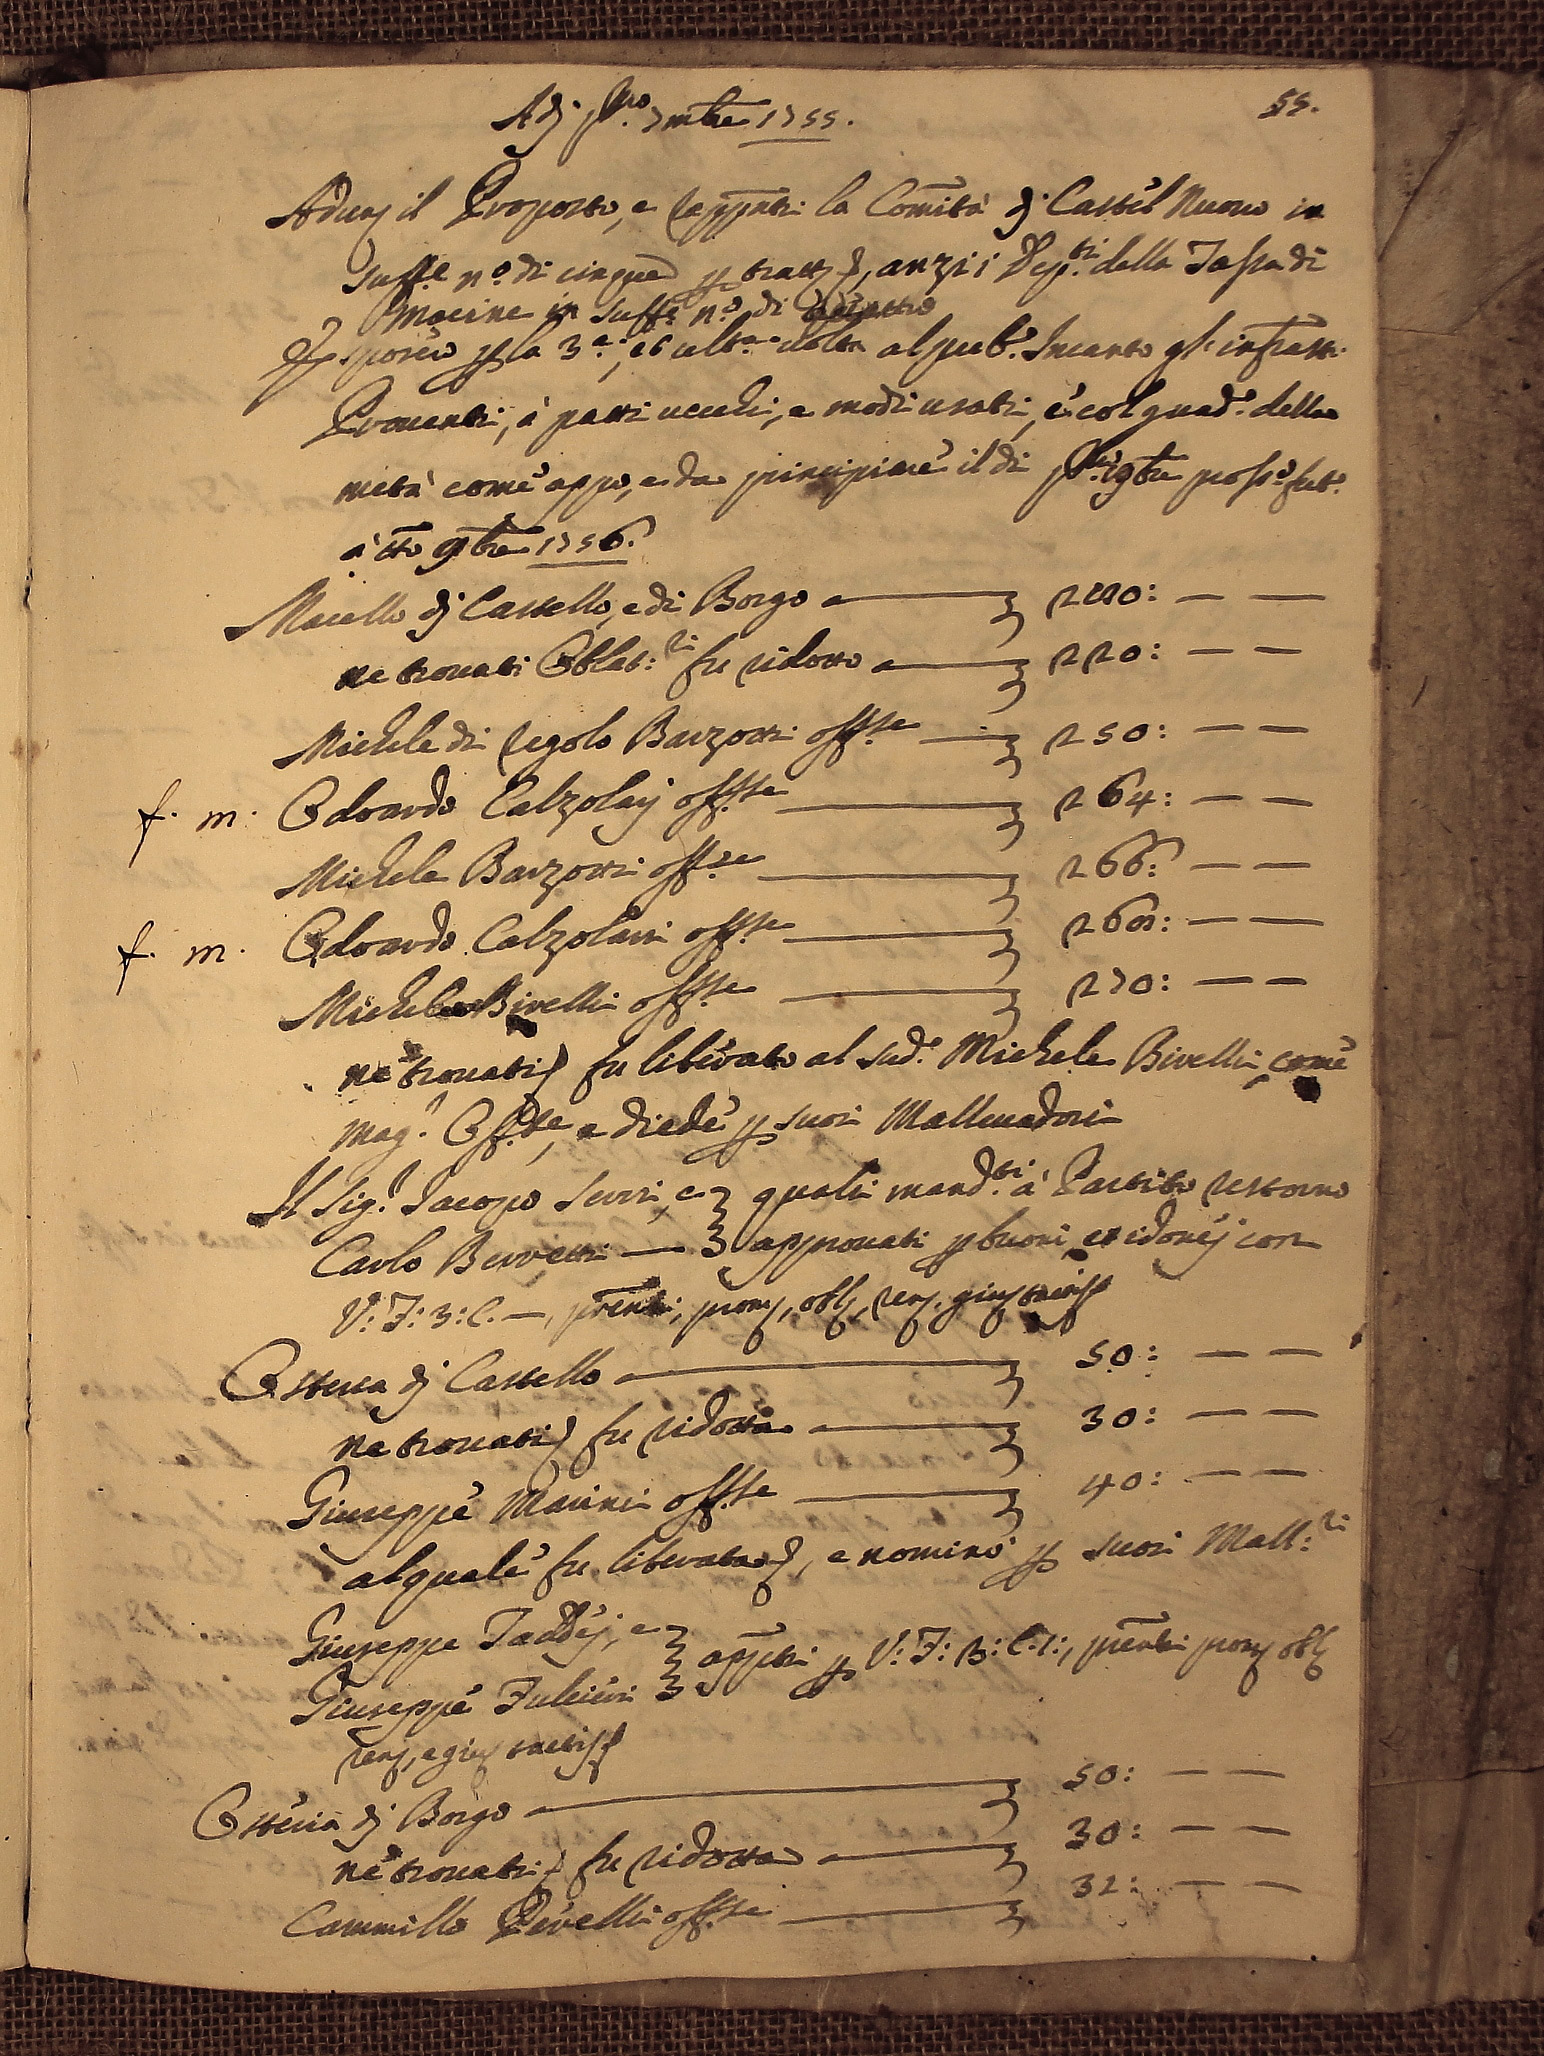 Adj p.mo 7mbre 1755. 55.
Adun. il Proposto, e rappnti la Comità dj Castel Nuovo in
suff.e n.o di cinque p tratt, anzi i Dep.ti della Tassa di
Macine in suff.e n.o di
Esposero p la 3.a, et ult.a volta al pub.o Incanto gl' infratti
Proventi, à patti vecchi, e modi usati, e col guad.o della
metà come app.o, e da principiare il dì p.mo 9bre pross.o fut.o
a tto 9bre 1756.
Macello dj Castello, e di Borgo — 280: — —
ne trovati Oblat:ri fu ridotto — 220: — —
Michele di Regolo Barzotti offse — 250: — —
f. m. Odoardo Calzolaj offse — 264: — —
Michele Barzotti offse — 266: — —
f. m. Odoardo Calzolari offse — 268: — —
Michele Bivelli offse — 270: — —
ne trovati fu liberato al sud.o Michele Bivelli, come
mag.r Offte, e diede p suoi Mallevadori
Il Sig.r Jacopo Servi, e quali mand.ti à Partito restorno
Carlo Berretti — approvati p buoni, et idonej con
V: F: 3: C. —, prenti, prom, obb, ren,
Osteria dj Castello — 50: — —
ne trovati fu ridotta — 30: — —
Giuseppe Marini offse — 40: — —
al quale fu liberata, e nominò p suoi Mall:ri
Giuseppe Taddej, e appti p V: F: 3: C. 1:, prenti prom obb
Giuseppe Fulcieri
ren, e giu
Osteria dj Borgo — 50: — —
ne trovati fu ridotta — 30: — —
Cammillo Pivelli offse — 32: — —